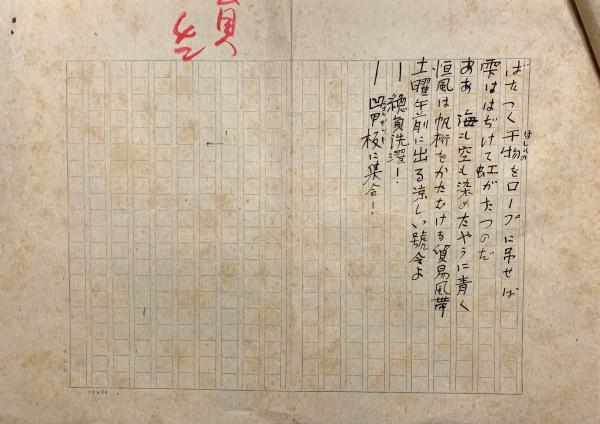 ばたつく干物をロープに吊せば
ほしもの
雫ははぢけて虹がたつのだ
ああ 海も空も染めたやうに青く
恒風は帆桁をかたむける貿易風帶
土曜午前に出る涼しい號令よ
― 總員洗濯!
― 凹甲板に集合!